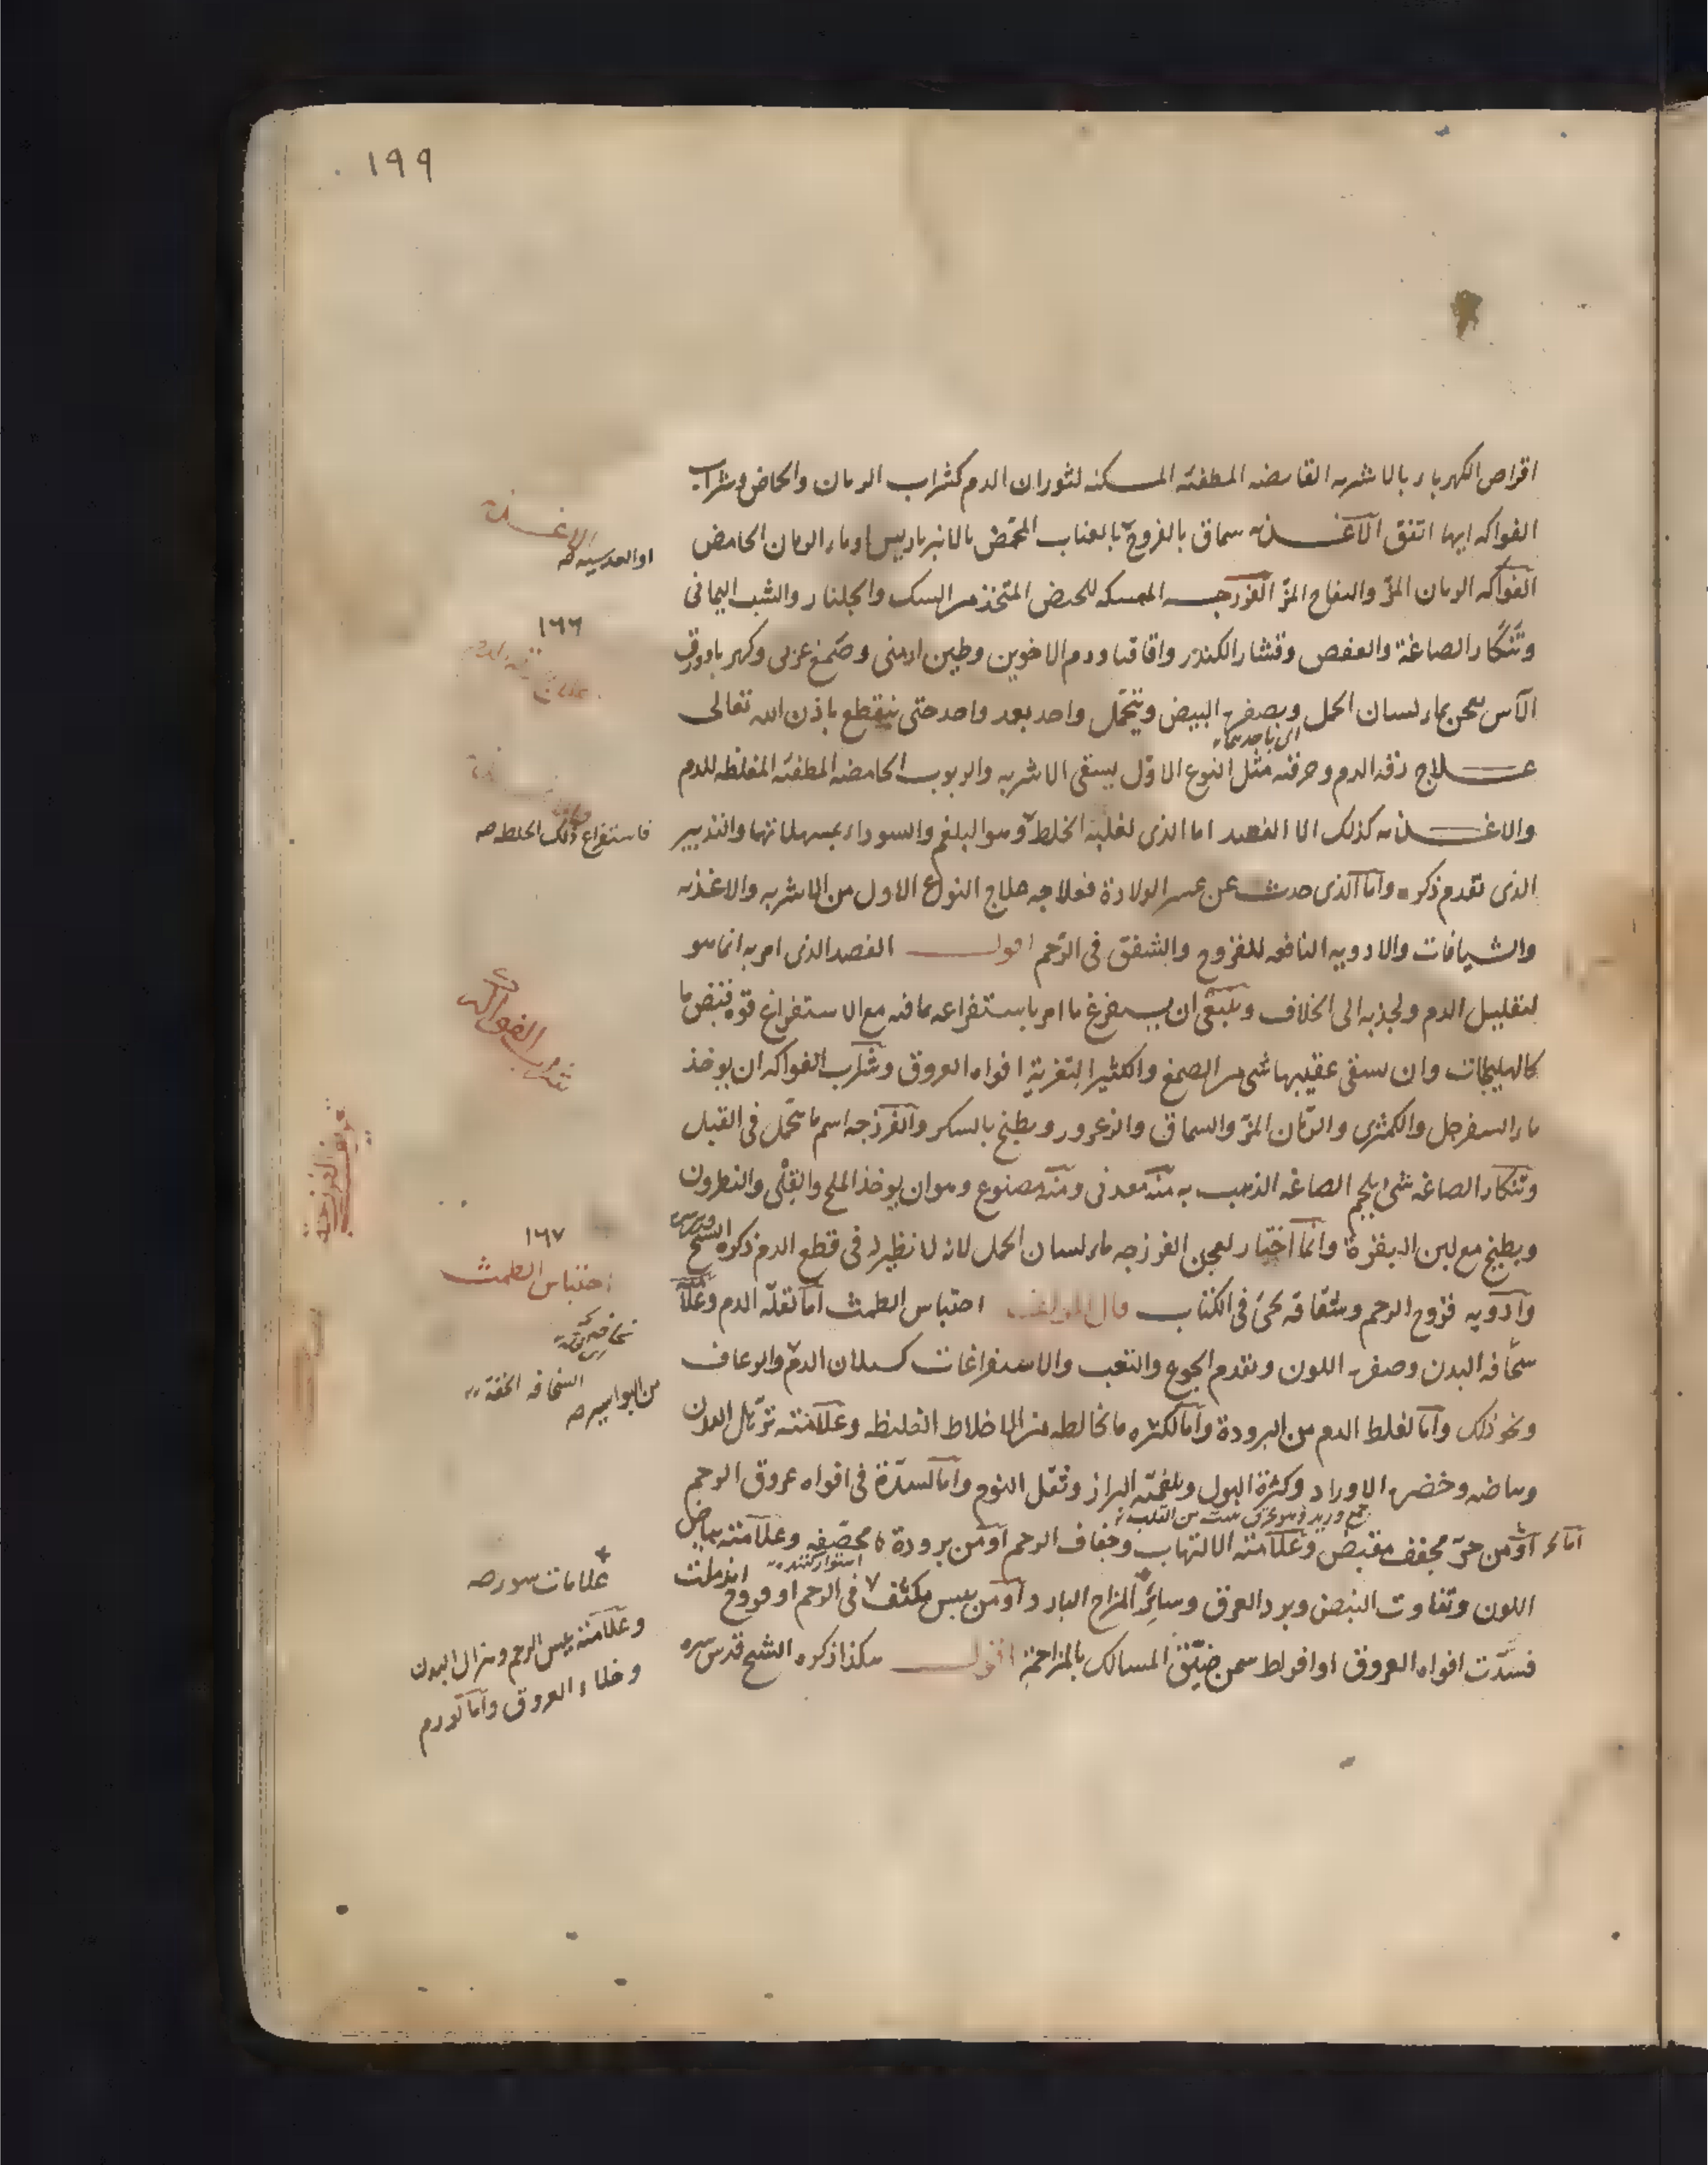 ١٩٩
اقراص الكهرباء بالاشربه القابضه المطفئه المسكنه لثوران الدم كشراب الرمان والحماض وشراب
الفواكه ايها اتفق الاغذيه سماق بالفروج بالعناب المحمض بالانبرباريس او ماء الرمان الحامض
الفواكه الرمان المز والتفاح المز الفرزجه الممسكه للحيض المتخذ من السك والجلنار والشب اليماني
وتنكار الصاغة والعفص وقشار الكندر واقاقيا ودم الاخوين وطين ارمني وصمغ عربي وكهربا وورق
الآس يعجن بماء لسان الحمل وبصفرة البيض ويتحمل واحد بعد واحد حتى ينقطع باذن الله تعالى
علاج رقه الدم وحرقته مثل النوع الاول يسقى الاشربه والربوب الحامضه المطفئه المغلظه للدم
والاغذيه كذلك الا الفصد اما الذى لغلبة الخلط وهو البلغم والسوداء بمسهلاتهما والتدبير
الذى تقدم ذكره واما الذى حدث عن عسر الولادة فعلاجه علاج النوع الاول من الاشربه والاغذيه
والشيافات والادويه النافعه للقروح والشقق فى الرحم اقول الفصد الذى امر به انما هو
لتقليل الدم ولجذبه الى الخلاف وينبغى ان يستفرغ ما امر باستفراغه بما فيه مع الاستفراغ قوة قبض ما
كالهليلجات وان يسقى عقيبها شى من الصمغ والكثيرا لتغرية افواه العروق وشراب الفواكه ان يوخذ
ماء السفرجل والكمثرى والرمان المز والسماق والزعرور ويطبخ بالسكر والفرزجه اسم ما تحمل فى القبل
وتنكار الصاغه شئ يلحم الصاغه الذهب به منه معدنى ومنه مصنوع وهو ان يوخذ الملح والقلى والنطرون
ويطبخ مع لبن البقرة وانما اختار لعجن الفرزجه ماء لسان الحمل لانه لا نظير له فى قطع الدم ذكره الشيخ
وادويه قروح الرحم وشقاقه تجئ فى الكتاب قال المولف احتباس الطمث اما لقلة الدم وعلامته
نحافه البدن وصفرة اللون وتقدم الجوع والتعب والاستفراغات كسيلان الدم والرعاف
ونحو ذلك واما لغلظ الدم من البرودة واما لكثره ما يخالطه من الاخلاط الغليظه وعلامته ترهل البدن
وبياضه وخضرة الاوراد وكثرة البول وبلغميه البراز وثقل النوم واما لسدة فى افواه عروق الرحم
اما لحر او من حر مجفف مقبض وعلامته الالتهاب وجفاف الرحم او من برودة محصفه وعلامته بياض
اللون وتفاوت النبض وبرد العرق وساير المزاج البارد او من يبس مكثف فى الرحم او قروح اندملت
فسدت افواه العروق او افراط سمن ضيق المسالك بالمزاحمة اقول هكذا ذكره الشيخ قدس سره
الاغذيه
او العدسيه صه
١٦٦
علاج رقه الدم
فاستفراغ ذلك الخلط صه
شراب الفواكه
تعريف الفرزجة
١٦٧
احتباس الطمث
النحافه الخفة
من البواسير صه
علامات سو صه
وعلامته يبس الرحم وهزال البدن
وخلاء العروق واما لورم